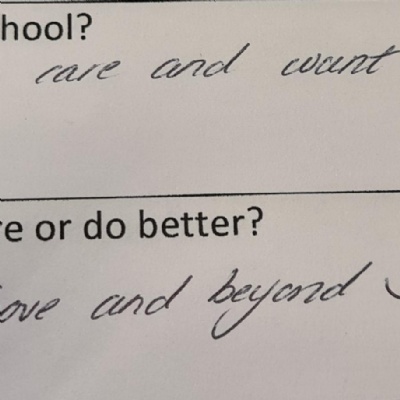 hool?
care and want
re or do better?
ove and beyond